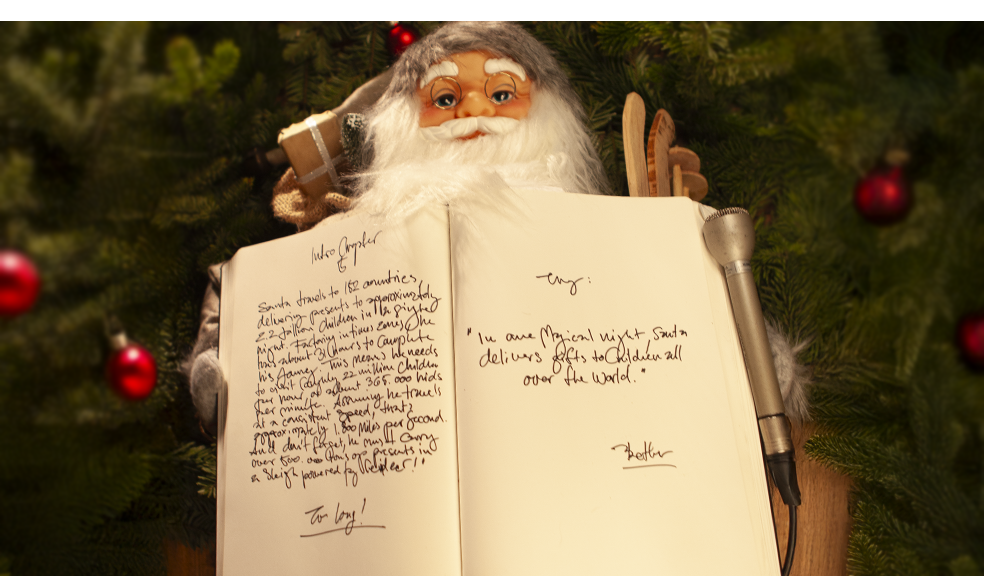 Intro Chapter
Santa travels to 182 countries,
delivering presents to approximately
2.2 billion children in a single
night. Factoring in time zones, he
has about 31 hours to complete
his journey. This means he needs
to visit roughly 22 million children
per hour, or about 365.000 kids
per minute. Assuming he travels
at a consistent speed, that's
approximately 1.800 Miles per second.
And don't forget, he must carry
over 500.000 tons of presents in
a sleigh powered by reindeer!"
Too long!
"In one Magical night, Santa
delivers gifts to Children all
over the World."
Better